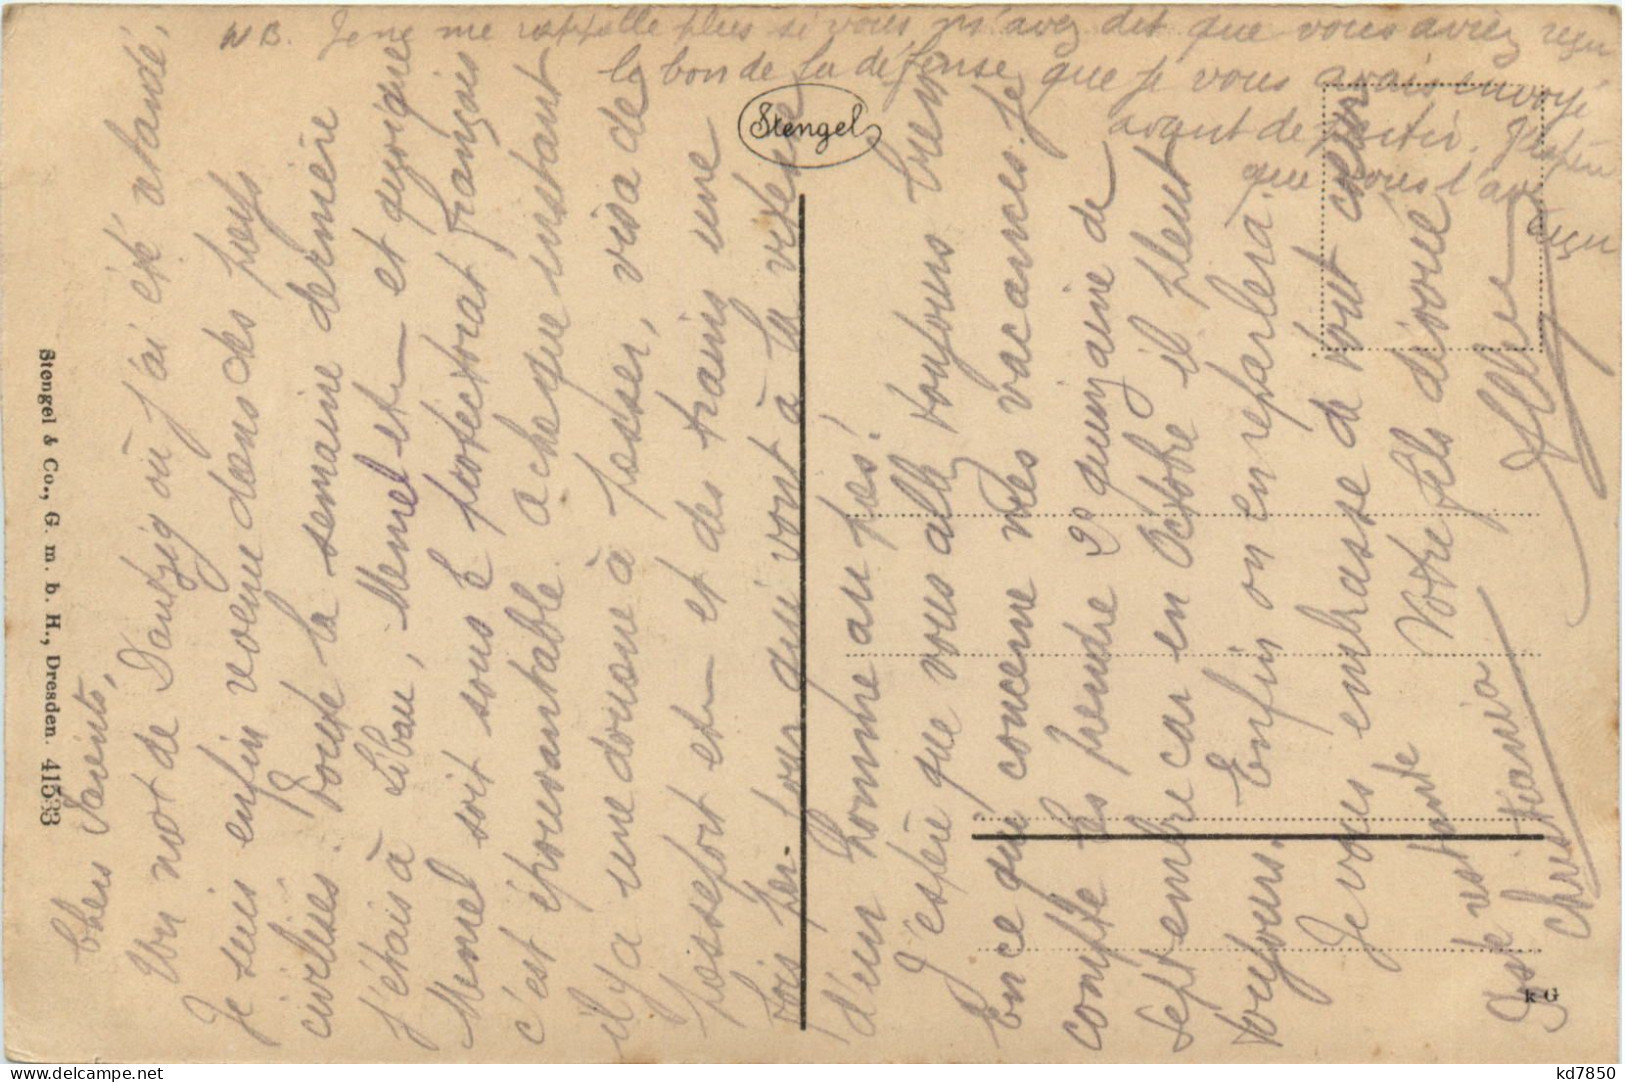 Chers Parents,
Un mot de Dantzig où j'ai été chandé,
Je suis enfin revenu dans des pays
civilisés. Toute la semaine dernière
j'étais à Libau, Memel etc et quoique
Memel soit sous le protectorat français
c'est épouvantable. A chaque instant
il y a une douane à passer, visa de
passeport etc et des trains une
fois par jour qui vont à la vitesse
d'un homme au pas!
J'espère que vous allez toujours bien.
En ce qui concerne mes vacances je
compte les prendre 2e quinzaine de
septembre car en Octobre il pleut
toujours. Enfin on en reparlera.
Je vous embrasse de tout cœur
Votre fils dévoué
Poste restante
Christiania
NB. Je ne me rappelle plus si vous m'avez dit que vous aviez reçu
le bon de la défense que je vous avais envoyé
avant de partir. J'espère
que vous l'avez
reçu
Stengel
Stengel & Co., G. m. b. H., Dresden. 41533
k G
kd7850